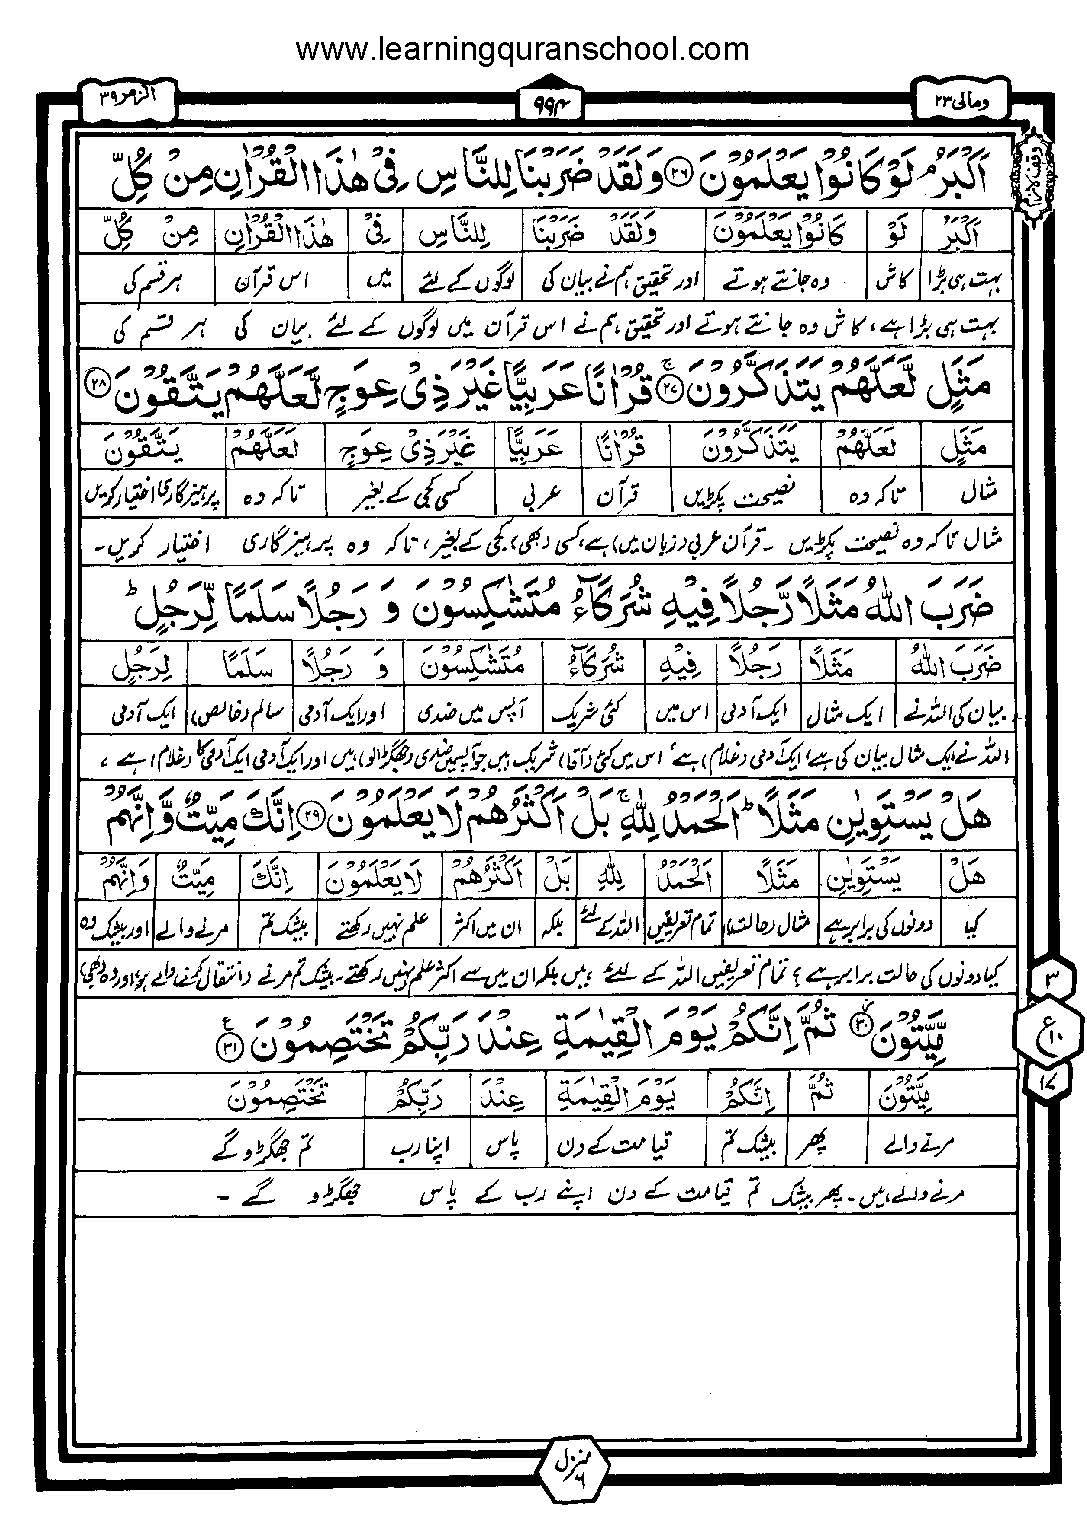 www.learningquranschool.com
ومالی ٢٣
٩٩٤
الزمر ٣٩
وقف لازم
اَكْبَرُ ۘ لَوْ كَانُوْا يَعْلَمُوْنَ ﴿٢٦﴾ وَلَقَدْ ضَرَبْنَا لِلنَّاسِ فِيْ هٰذَا الْقُرْاٰنِ مِنْ كُلِّ
اَكْبَرُ لَوْ كَانُوْا يَعْلَمُوْنَ وَلَقَدْ ضَرَبْنَا لِلنَّاسِ فِيْ هٰذَا الْقُرْاٰنِ مِنْ كُلِّ
بہت ہی بڑا کاش وہ جانتے ہوتے اور تحقیق ہم نے بیان کی لوگوں کے لئے میں اس قرآن ہر قسم کی
بہت ہی بڑا ہے، کاش وہ جانتے ہوتے اور تحقیق ہم نے اس قرآن میں لوگوں کے لئے بیان کی ہر قسم کی
مَثَلٍ لَّعَلَّهُمْ يَتَذَكَّرُوْنَ ﴿٢٧﴾ۚ قُرْاٰنًا عَرَبِيًّا غَيْرَ ذِيْ عِوَجٍ لَّعَلَّهُمْ يَتَّقُوْنَ ﴿٢٨﴾
مَثَلٍ لَعَلَّهُمْ يَتَذَكَّرُوْنَ قُرْاٰنًا عَرَبِيًّا غَيْرَ ذِيْ عِوَجٍ لَعَلَّهُمْ يَتَّقُوْنَ
مثال تاکہ وہ نصیحت پکڑیں قرآن عربی کسی کجی کے بغیر تاکہ وہ پرہیزگاری اختیار کریں
مثال تاکہ وہ نصیحت پکڑیں۔ قرآن عربی (زبان میں) ہے، کسی (بھی) کجی کے بغیر، تاکہ وہ پرہیزگاری اختیار کریں۔
ضَرَبَ اللّٰهُ مَثَلًا رَّجُلًا فِيْهِ شُرَكَآءُ مُتَشٰكِسُوْنَ وَ رَجُلًا سَلَمًا لِّرَجُلٍ ؕ
ضَرَبَ اللّٰهُ مَثَلًا رَجُلًا فِيْهِ شُرَكَآءُ مُتَشٰكِسُوْنَ وَ رَجُلًا سَلَمًا لِرَجُلٍ
بیان کی اللہ نے ایک مثال ایک آدمی اس میں کئی شریک آپس میں ضدی اور ایک آدمی سالم (خالص) ایک آدمی
اللہ نے ایک مثال بیان کی ہے، ایک آدمی (غلام) ہے، اس میں کئی (آقا) شریک ہیں جو آپس میں ضدی (جھگڑالو) ہیں اور ایک آدمی ایک آدمی کا (غلام) ہے،
هَلْ يَسْتَوِيٰنِ مَثَلًا ؕ اَلْحَمْدُ لِلّٰهِ ۚ بَلْ اَكْثَرُهُمْ لَا يَعْلَمُوْنَ ﴿٢٩﴾ اِنَّكَ مَيِّتٌ وَّاِنَّهُمْ
هَلْ يَسْتَوِيٰنِ مَثَلًا اَلْحَمْدُ لِلّٰهِ بَلْ اَكْثَرُهُمْ لَا يَعْلَمُوْنَ اِنَّكَ مَيِّتٌ وَاِنَّهُمْ
کیا دونوں کی برابر ہے مثال (حالت) تمام تعریفیں اللہ کے لئے بلکہ ان میں اکثر علم نہیں رکھتے بیشک تم مرنے والے اور بیشک وہ
کیا دونوں کی حالت برابر ہے؟ تمام تعریفیں اللہ کے لئے ہیں بلکہ ان میں سے اکثر علم نہیں رکھتے۔ بیشک تم مرنے (انتقال کرنے) والے ہو اور وہ (بھی)
مَّيِّتُوْنَ ﴿٣٠﴾ ثُمَّ اِنَّكُمْ يَوْمَ الْقِيٰمَةِ عِنْدَ رَبِّكُمْ تَخْتَصِمُوْنَ ﴿٣١﴾
مَيِّتُوْنَ ثُمَّ اِنَّكُمْ يَوْمَ الْقِيٰمَةِ عِنْدَ رَبِّكُمْ تَخْتَصِمُوْنَ
مرنے والے پھر بیشک تم قیامت کے دن پاس اپنا رب تم جھگڑو گے
مرنے والے ہیں۔ پھر بیشک تم قیامت کے دن اپنے رب کے پاس جھگڑو گے۔
٣
ع ١٠
١٧
منزل ٦